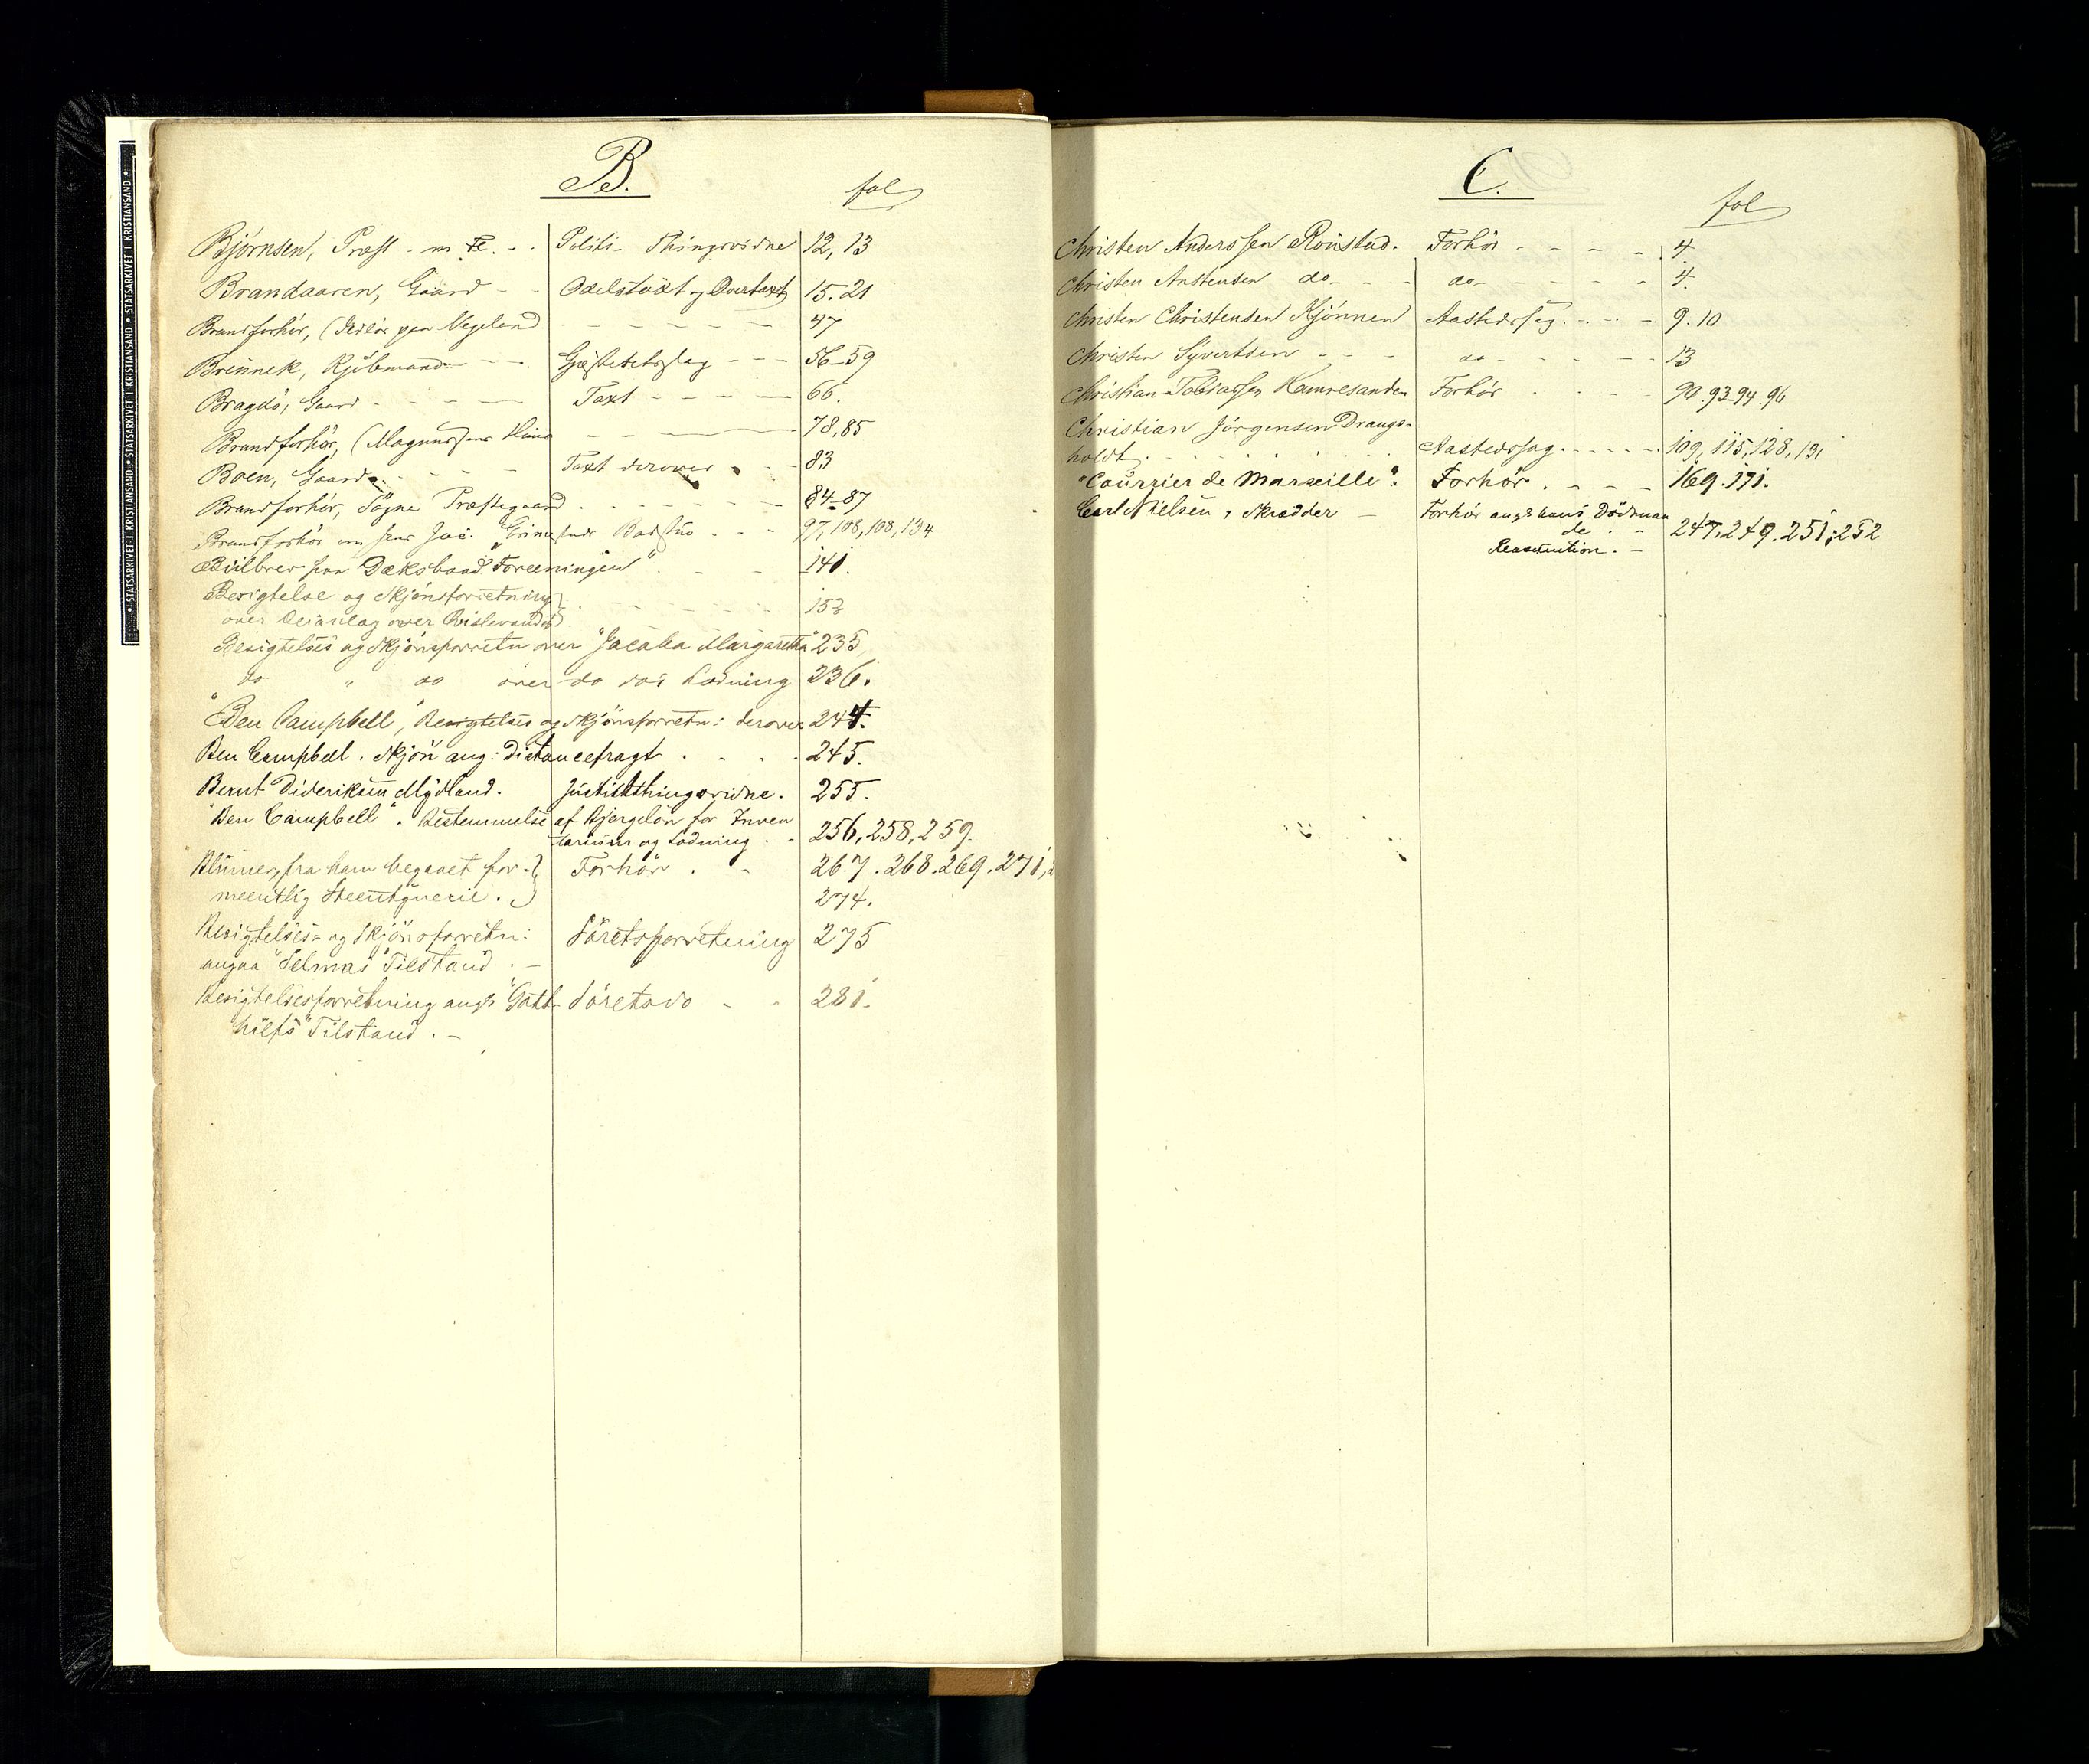 STATSARKIVET I KRISTIANSAND • STATSARKIVET I KRISTIANSAND • STATSARKIVET I KRISTIANSAND
B.
fol
Bjørnsen, Præst - m. Fl. - - Politi- Thingsvidne 12, 13
Brandaaren, Gaard - - Odelstaxt og Overtaxt 15. 21
Brandforhör, ( paa Vegeland - - - - - 47
Brinnek, Kjöbmand - - - Gjæsteretssag - - - 56-59
Bragdö, Gaard - - - - - Taxt - - - - 66.
Brandforhör, (Magnussens Huus - - 78, 85
Boen, Gaard - - - Taxt derover - - - 83
Brandforhör, Sögne Præstegaard - - - - - 84-87
Brandforhör om Jac. Badstue - - - 97, 108, 108, 134
Biilbrev paa Dæksbaad "Foreeningen". - - 141.
Besigtelse og Skjönsforretning
over over 153
Besigtelses og Skjönsforretn over "Jacoba Margaretha" 235,
do " do over do des Ladning 236.
"Ben Campbell", Besigtelses og Skjönsforretn: derover 244.
Ben Campbell. Skjön ang: Distancefragt . . . . 245.
Bernt Dideriksen Mydland. Justitsthingsvidne. 255.
"Ben Campbell". Bestemmelse af Bjergelön for Inven
tarium og Ladning . - 256, 258, 259.
fra ham begaaet for- } Forhör . - 267. 268. 269. 271,
meentlig . 274.
Besigtelses- og Skjönsforretn: Söretsforretning 275
angaa "Selmas" Tilstand . -
Besigtelsesforretning angs "Gott- Söretsdo - - 281.
hilfs" Tilstand . -
C.
fol
Christen Anderssen Ronstad. Forhör - - - - 4.
Christen Anstensen do - - - do - - - - - 4.
Christen Christensen Kjönnen Aastedssag. - - - 9. 10
Christen Syvertsen - - - do - - - - - 13
Christian Tobiassen Hamresanden Forhör . . - - 90. 93-94. 96
Christian Jörgensen Drangs-
holdt . . . . . . Aastedssag. - - - - 109, 115, 128, 131
"Courrier de Marseille". Forhör . - - - 169. 171.
Carl Nielsen, Skrædder - Forhör angs hans Dödsmaa
de . - 247, 249. 251, 252